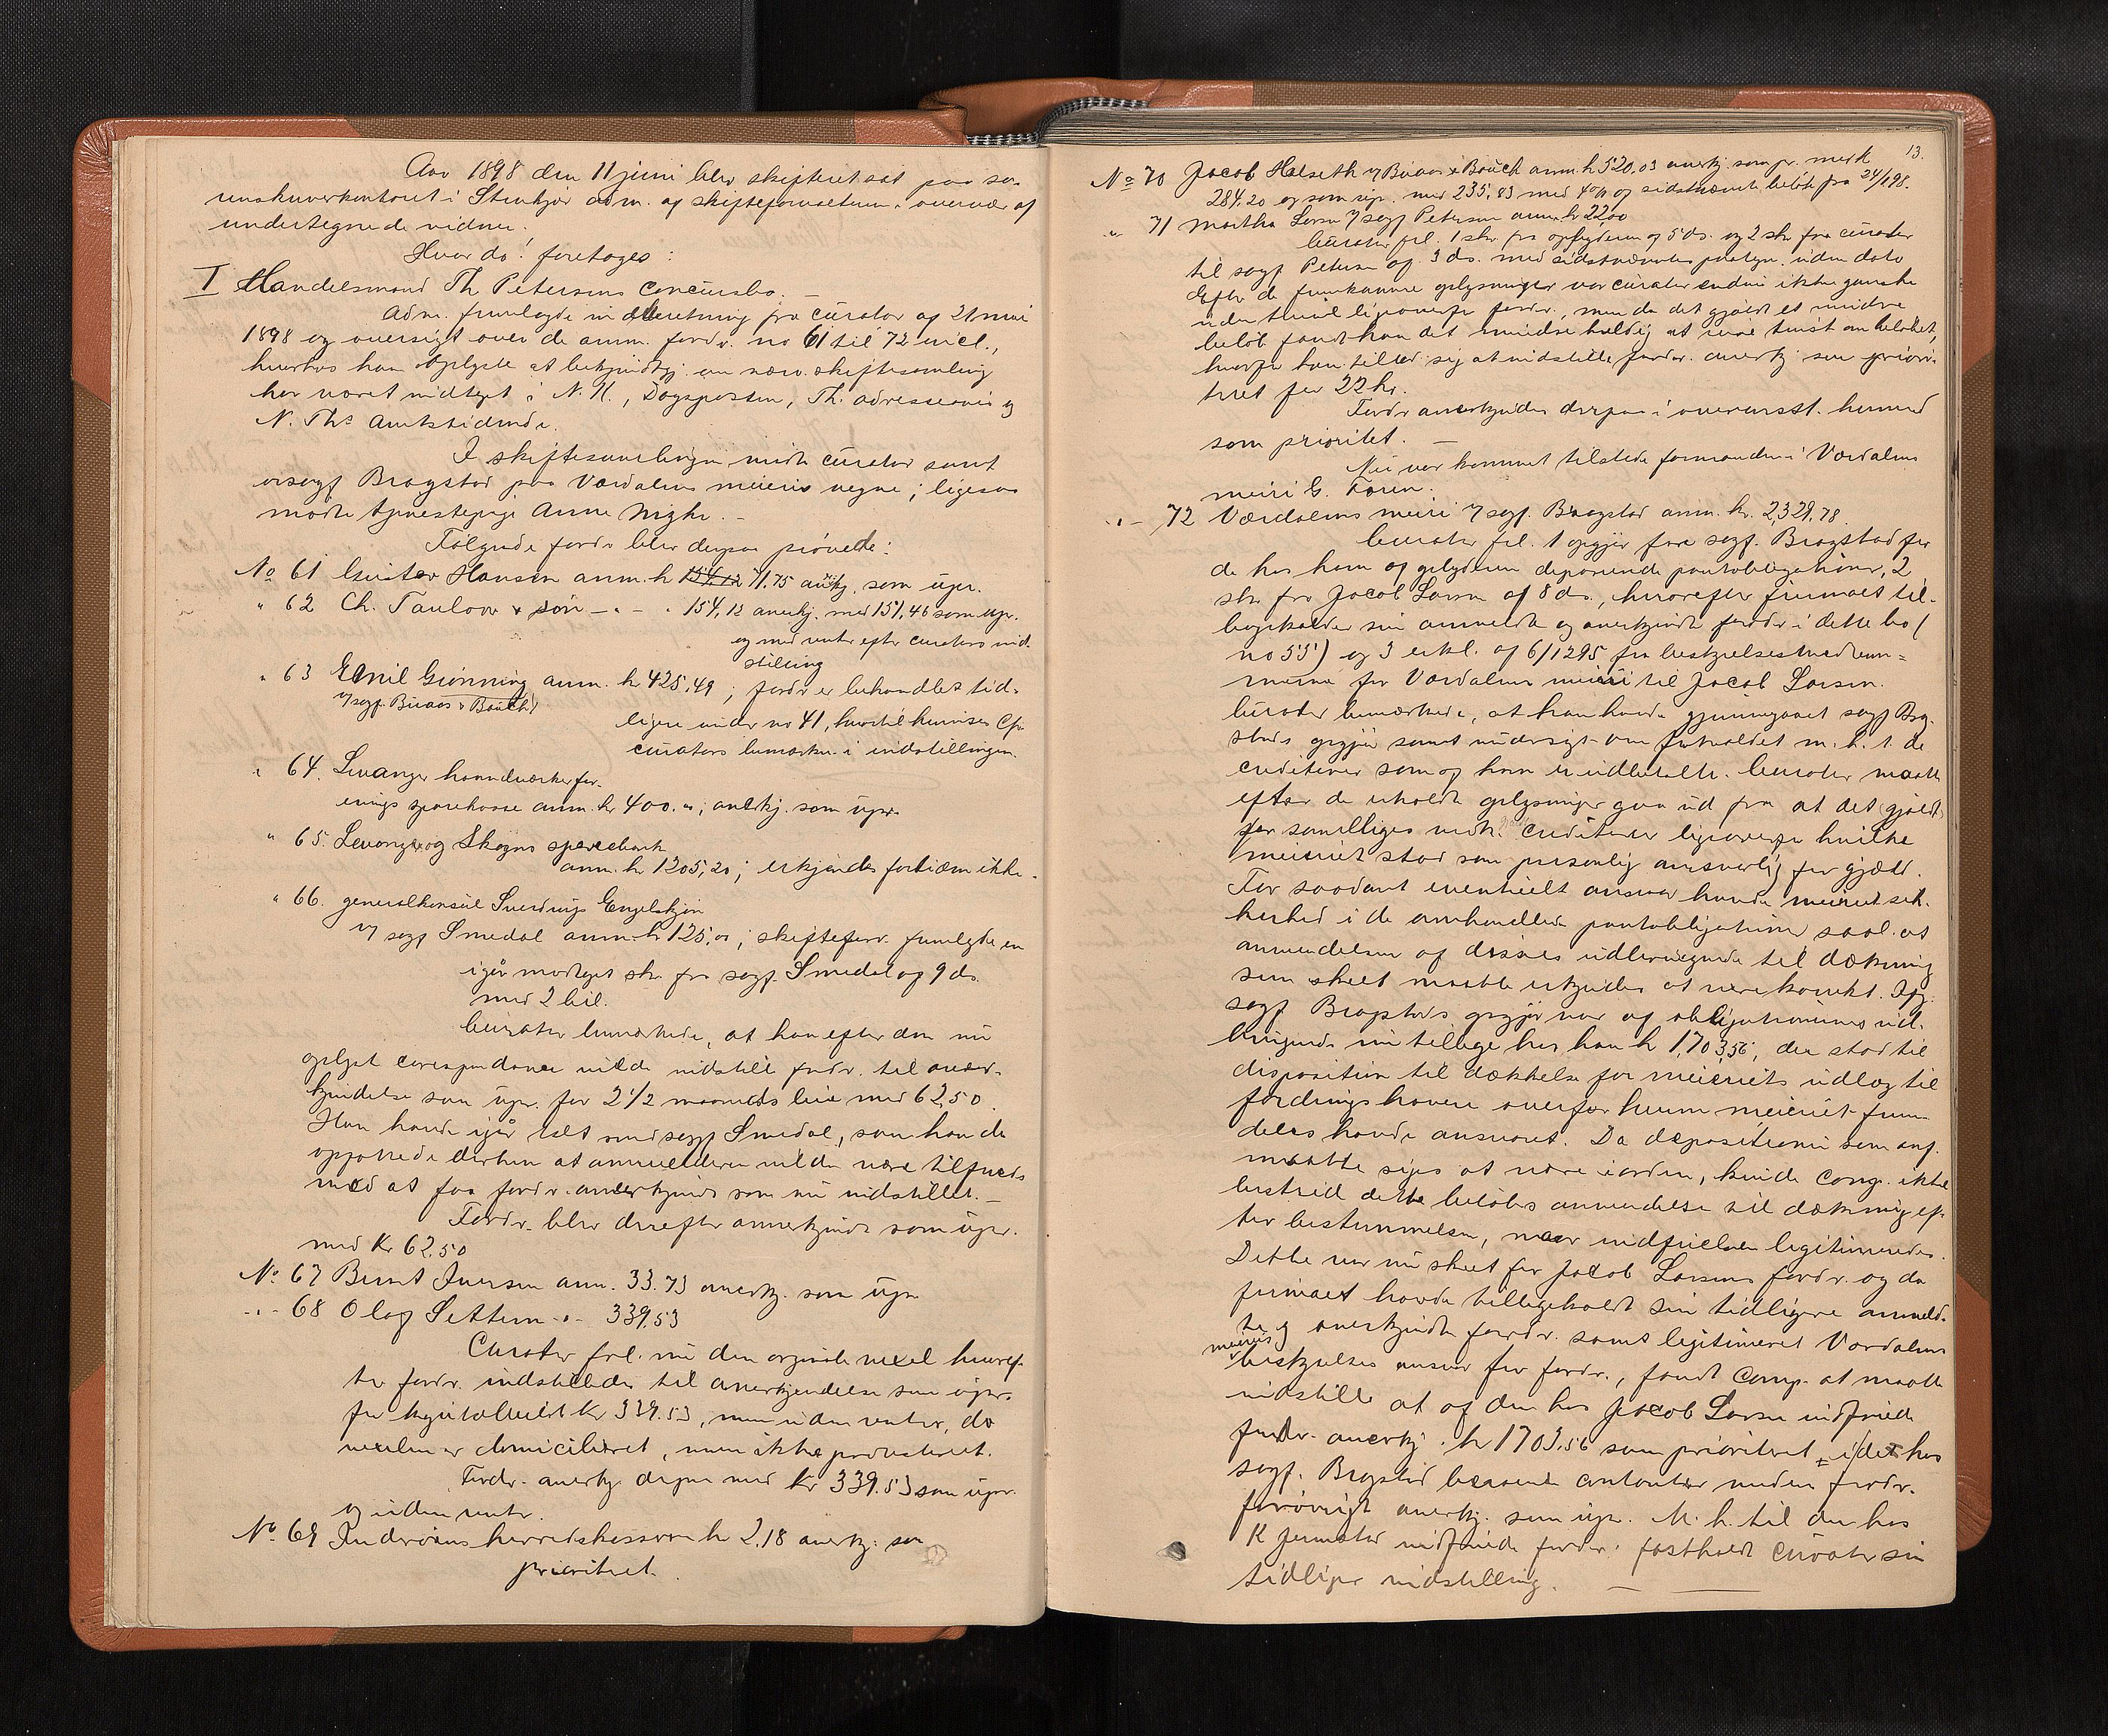 Aar 1898 den 11 juni blev skifteret sat paa so-
renskriverkontoret i Stenkjær adm. af skifteforvalteren i overvær af
undertegnede vidner.
Hvor da! foretoges:
I Handelsmand Th Petersens concursbo. —
Adm. fremlagde indberetning fra curator af 21 mai
1898 og oversigt over de anm. fordr. no 61 til 72 incl.,
hvorhos han oplyste at bekjendtgj. om nærv. skiftesamling
har været indtaget i N. K., Dagsposten, Th. adresseavis og
N. Ths amtstidende.
I skiftesamlingen mødte curator samt
ovsagf Bragstad paa Værdalens meieris vegne; ligesaa
mødte tjenestepige Anne
Følgende fordr blev derpaa prøvede:
No 61 Gustav Hansen anm. kr 154.12 71.75 anerkj. som upr.
" 62 Ch. Taulow & søn — " — " 154,12 anerkj. med 151,46 som upr.
og med renter efter curators ind-
stilling
" 63 Emil Grønning anm. kr 425,49; fordr er behandlet tid-
v/ sagf. Buaas & Bauck!
ligere under no 41, hvortil henvises cfr
curators bemærkn. i indstillingen.
" 64. Levanger haandværkerfor-
enings sparekasse anm. kr 400. "; anerkj. som upr.
" 65. Levanger og Skogns sparebank
anm. kr 1205,20; erkjendes fortiden ikke.
" 66. generalkonsul Sverdrup Engelskjøn
v/ sagf Smedal anm. kr 125,00; skifteforv. fremlagde en
igår modtaget skr. fra sagf. Smedal af 9 ds.
med 2 bil.
Curator bemærkede, at han efter den nu
oplyst corespondance vilde indstille fordr. til aner-
kjendelse som upr. for 2 1/2 maaneds leie med 62.50.
Han havde igår talt med sagf Smedal, som han da
opfattede derhen at anmelderen vilde være tilfreds
med at faa fordr. anerkjendt som nu indstillet. —
Fordr. blev derefter annerkjendt som upr.
med Kr 62.50
No 67 Bernt Iversen anm. 33.73 anerkj. som upr
-"- 68 Olaf Settem -"- 339.53
Curator frl. nu den orginale vexel hvoref-
ter fordr. indstilledes til anerkjendelse som upr.
for kapitalbeløb Kr 339.53, men uden renter, da
vexelen er domicilieret, men ikke protesteret.
Fordr. anerkj. derpaa med Kr 339.53 som upr.
og uden renter.
No 69 Inderøens herredskasserer kr 2,18 anerkj. som
prioriteret.
13.
No 70 Jacob Halseth v/ Buaas & Bauck anm. kr 520,03 anerkj. som pr. med kr
284.20 og som upr. med 235,83 med 4% af sidstnævnt beløb fra 24/1 98.
-"- 71 Martha Larsen v/ sagf Petersen anm. kr 22.00
Curator frl. 1 skr. fra opbyderen af 5 ds. og 2 skr fra curator
til sagf Petersen af 3 ds. med sidstnævntes paategn. uden dato
Efter de fremkomne oplysninger var curator endnu ikke ganske
uden tvivl ligeoverfor fordr., men da det gjaldt et mindre
beløb fandt han det mindre heldig at reise tvist om beløbet,
hvorfor han tillod sig at indstille fordr. anerkj. som priori-
teret for 22 kr.
Fordr anerkjendes derpaa i overensst. hermed
som prioritet. —
Nu var kommet tilstede formanden i Værdalens
meieri G. Faren.
-"- 72 Værdalens meieri v/ sagf. Bragstad anm. kr. 2,329,78.
Curator frl. 1 opgjør fra sagf. Bragstad for
de hos ham af opbyderen deponerede pantobligationer, 2
skr. fra Jacob Larsen af 8 ds., hvorefter firmaet til-
bagekalder sin anmeldte og anerkjendte fordr i dette bo (
no 55) og 3 erkl. af 6/12 95 fra bestyrelsesmedlem-
merne for Værdalens meieri til Jacob Larsen.
Curator bemærkede, at han havde gjennemgaaet sagf Brag-
stads opgjør samt undersøgt om forholdet m. h. t. de
creditorer som af ham er udbetalte. Curator maatte
efter de erholdte oplysninger gaa ud fra at det gjaldt
for samtliges vedk. creditorer ligeoverfor hvilke
meieriet stod som personlig ansvarlig for gjæld.
For saadant eventuelt ansvar havde meieriet sik-
kerhed i de omhandlede pantobligationer saal. at
anvendelsen af disses udbringende til dækning
som skeet maatte erkjendes at være korrekt. Ifg.
sagf Bragstads opgjør var af obligationernes ud-
bringende nu tilbage hos ham kr 1,703,56, der stod til
disposition til dækkelse for meieriets udlæg til
fordringshavere overfor hvem meieriet frem-
deles havde ansvaret. Da depositionen som anf.
maatte siges at være i orden, kunde conc. ikke
bestride dette beløbs anvendelse til dækning ef-
ter bestemmelsen, naar indfrielsen legitimeredes.
Dette var nu skeet for Jacob Larsens fordr. og da
firmaet havde tilbagekaldt sin tidligere anmeld-
te og anerkjendte fordr. samt legitimeret Værdalens
meieris bestyrelses ansvar for fordr., fandt conc. at maatte
indstille at af den hos Jacob Larsen indfriede
fordr. anerkj. kr 1703,56 som prioriteret i det hos
sagf. Bragstad beroende contanter meden fordr.
forøvrigt anerkj. som upr. M. h. til den hos
K Jermstad indfriede fordr. fastholdt curator sin
tidligere indstilling. —